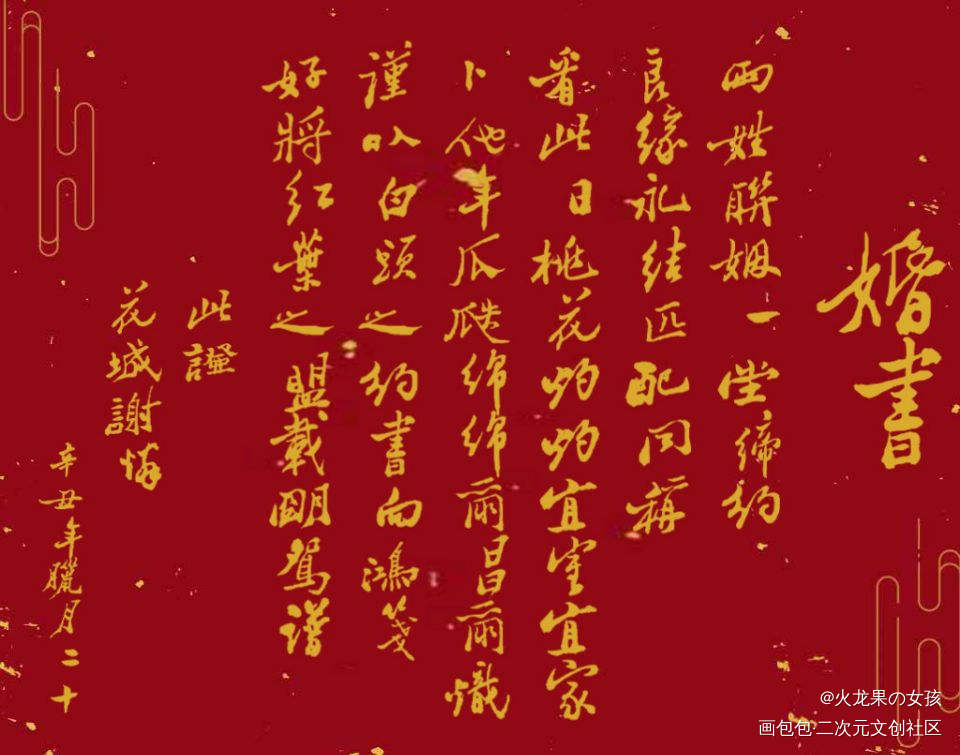 婚書
两姓聯姻一堂締約
良緣永结匹配同稱
看此日桃花灼灼宜室宜家
卜他年瓜瓞绵绵爾昌爾熾
謹以白頭之约書向鴻箋
好將红葉之盟載明鴛谱
此證
花城謝憐
辛丑年臘月二十
@火龙果の女孩
画包包·二次元文创社区